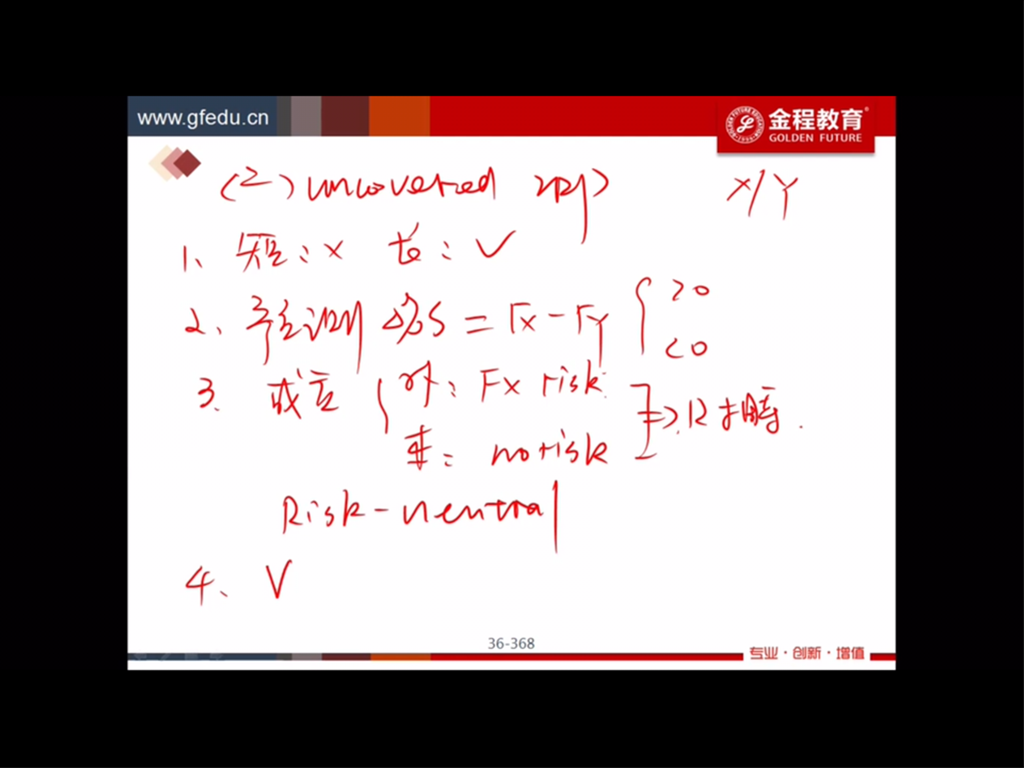 www.gfedu.cn
金程教育
GOLDEN FUTURE
(2) uncovered IRP X/Y
1、短：× 长：✓
2、预测 Δ%S = rx - ry { >0
<0
3. 成立 { 外：FX risk
本：no risk } ⇒
Risk-neutral
4、V
36-368
专业·创新·增值